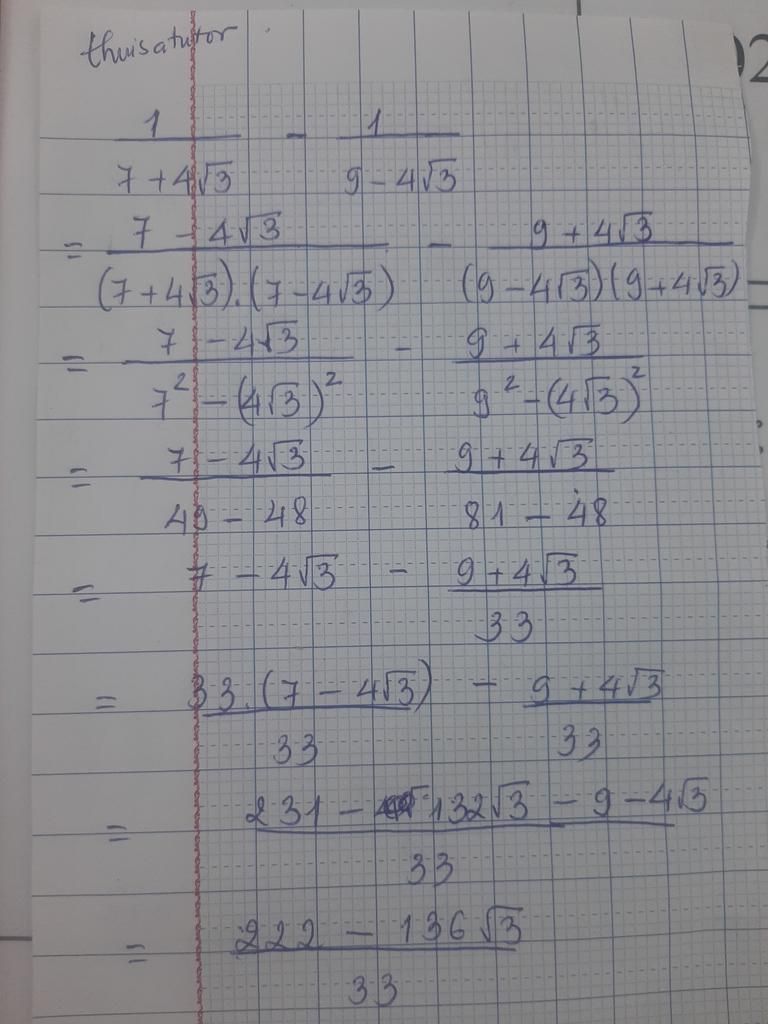 thuisatutor
1/(7 + 4√3) - 1/(9 - 4√3)
= (7 - 4√3)/((7 + 4√3).(7 - 4√3)) - (9 + 4√3)/((9 - 4√3)(9 + 4√3))
= (7 - 4√3)/(7² - (4√3)²) - (9 + 4√3)/(9² - (4√3)²)
= (7 - 4√3)/(49 - 48) - (9 + 4√3)/(81 - 48)
= 7 - 4√3 - (9 + 4√3)/33
= 33.(7 - 4√3)/33 - (9 + 4√3)/33
= (231 - 132√3 - 9 - 4√3)/33
= (222 - 136√3)/33